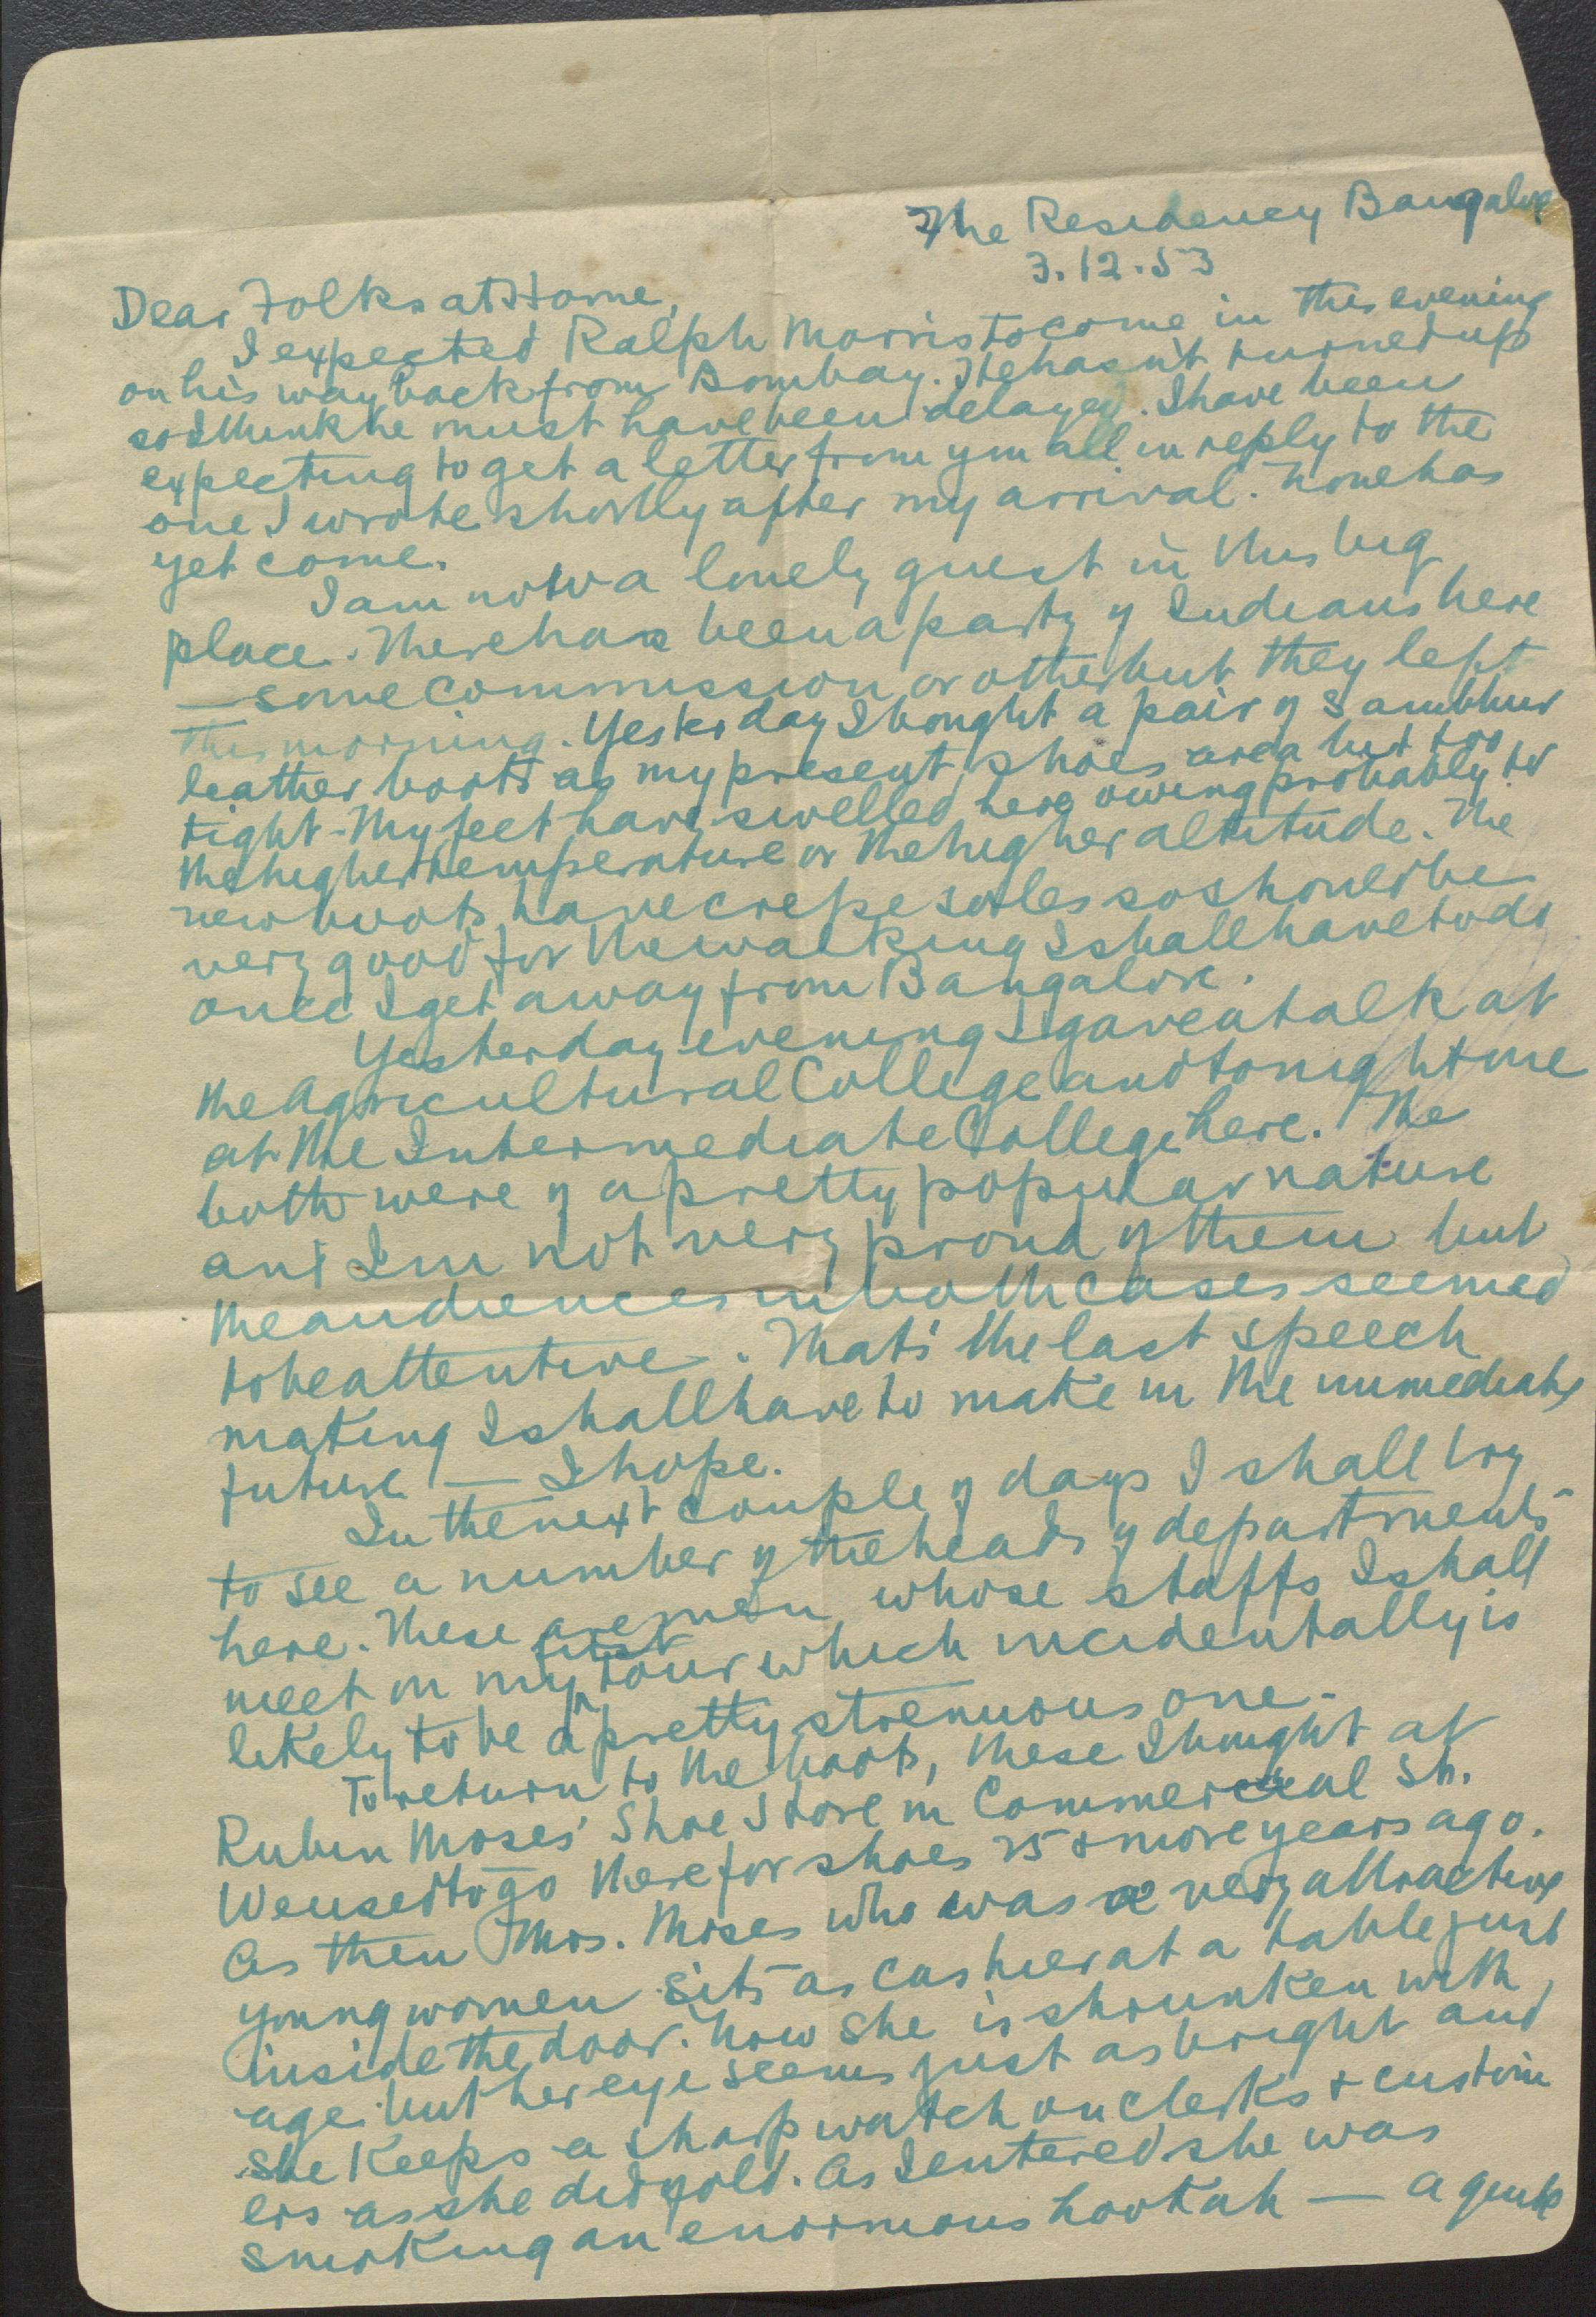 The Residency Bangalore
3.12.53
Dear Folks at Home,
I expected Ralph Morris to come in this evening
on his way back from Bombay. He hasn't turned up
so I think he must have been delayed. I have been
expecting to get a letter from you all in reply to the
one I wrote shortly after my arrival. None has
yet come.
I am now a lonely guest in this big
place. There has been a party of Indians here
— some commission or other but they left
this morning. Yesterday I bought a pair of Sambhur
leather boots as my present shoes are a bit too
tight. My feet have swelled here owing probably to
the higher temperature or the higher altitude. The
new boots have crepe soles so should be
very good for the walking I shall have to do
once I get away from Bangalore.
Yesterday evening I gave a talk at
the Agricultural College and tonight one
at the Intermediate College here. The
both were of a pretty popular nature
and I'm not very proud of them but
the audiences in both cases seemed
to be attentive. That's the last speech
making I shall have to make in the immediate
future — I hope.
In the next couple of days I shall try
to see a number of the heads of departments
here. These are men whose staffs I shall
meet on my first tour which incidentally is
likely to be a pretty strenuous one.
To return to the boots, these I bought at
Rubin Moses' Shoe Store in Commercial St.
We used to go there for shoes 25 & more years ago.
As then Mrs. Moses who was a very attractive
young women sits as cashier at a table just
inside the door. Now she is shrunken with
age but her eye seems just as bright and
she keeps a sharp watch on clerks & custom
ers as she did of old. As I entered she was
smoking an enormous hookah — a quite